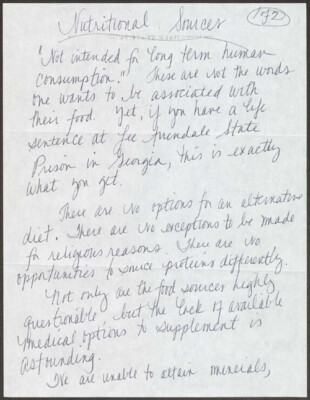 Nutritional Sources
1 of 2
"Not intended for long term human
consumption." These are not the words
one wants to be associated with
their food. Yet, if you have a life
sentence at Lee Arrendale State
Prison in Georgia, this is exactly
what you get.
There are no options for an alternative
diet. There are no exceptions to be made
for religious reasons. There are no
opportunities to source proteins differently.
Not only are the food sources highly
questionable but the lack of available
medical options to supplement is
astounding.
We are unable to attain minerals,